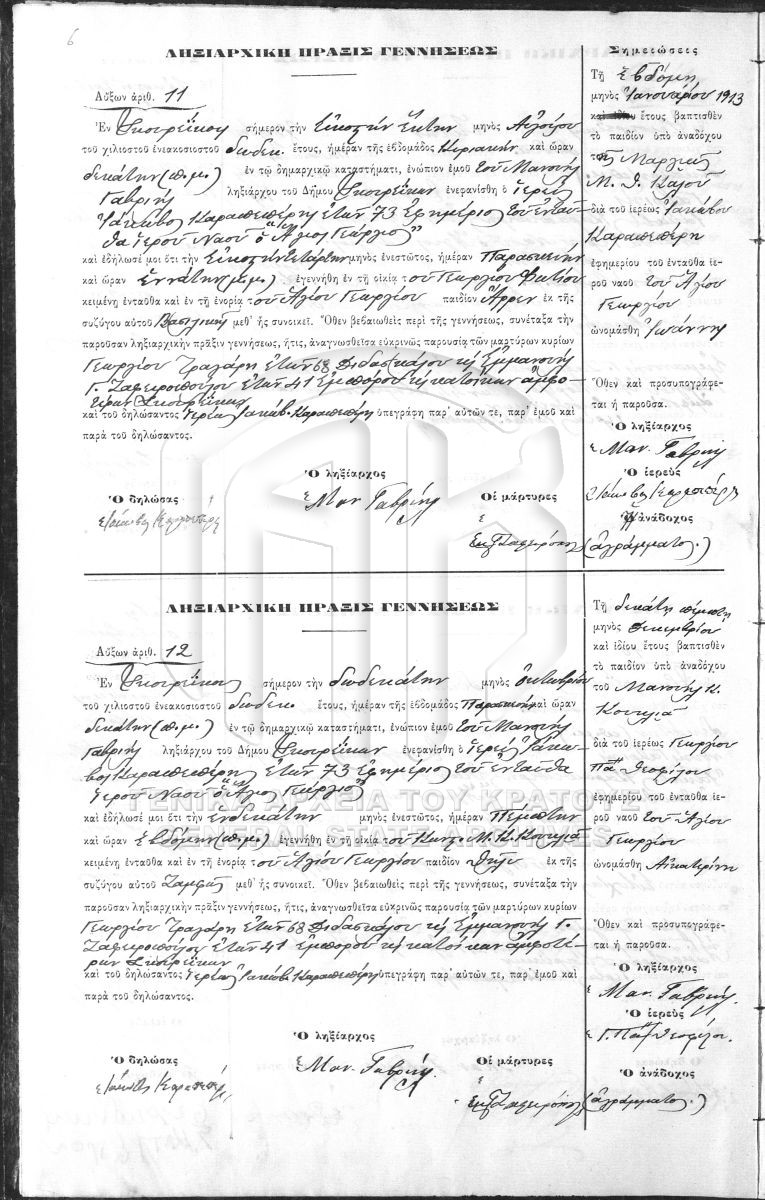 6
ΛΗΞΙΑΡΧΙΚΗ ΠΡΑΞΙΣ ΓΕΝΝΗΣΕΩΣ
Αὔξων ἀριθ. 11
Ἐν σήμερον τὴν Εἰκοστὴν Ἕκτην μηνὸς Αὐγούστου
τοῦ χιλιοστοῦ ἐνεακοσιοστοῦ δωδεκ. ἔτους, ἡμέραν τῆς ἑβδομάδος Κυριακὴν καὶ ὥραν
δεκάτην (π.μ.) ἐν τῷ δημαρχικῷ καταστήματι, ἐνώπιον ἐμοῦ τοῦ Μανουὴλ
Γαβριὴλ ληξιάρχου τοῦ Δήμου ἐνεφανίσθη ὁ ἱερεὺς
Ἰάκωβος ἐτῶν 73 ἐφημέριος τοῦ ἐνταῦ-
θα ἱεροῦ Ναοῦ ὁ "Ἅγιος Γεώργιος"
καὶ ἐδήλωσέ μοι ὅτι τὴν Εἰκοστὴν Τετάρτην μηνὸς ἐνεστῶτος, ἡμέραν Παρασκευὴν
καὶ ὥραν Ἐννάτην (μ.μ.) ἐγεννήθη ἐν τῇ οἰκίᾳ τοῦ Γεωργίου Φωτίου
κειμένῃ ἐνταῦθα καὶ ἐν τῇ ἐνορίᾳ τοῦ Ἁγίου Γεωργίου παιδίον Ἄρρεν ἐκ τῆς
συζύγου αὐτοῦ Βασιλικῆς μεθ' ἧς συνοικεῖ. Ὅθεν βεβαιωθεὶς περὶ τῆς γεννήσεως, συνέταξα τὴν
παροῦσαν ληξιαρχικὴν πρᾶξιν γεννήσεως, ἥτις, ἀναγνωσθεῖσα εὐκρινῶς παρουσίᾳ τῶν μαρτύρων κυρίων
Γεωργίου ἐτῶν 68 Διδασκάλου καὶ Ἐμμανουὴλ
Γ. Ζαφειροπούλου ἐτῶν 41 Ἐμπόρου καὶ κατοίκων ἀμφο-
τέρων
καὶ τοῦ δηλώσαντος Ἱερέως Ἰακώβ. ὑπεγράφη παρ' αὐτῶν τε, παρ' ἐμοῦ καὶ
παρὰ τοῦ δηλώσαντος.
Ὁ ληξίαρχος
Ὁ δηλώσας
Μαν. Γαβριὴλ
Οἱ μάρτυρες
Σημειώσεις
Τῇ ἑβδόμῃ
μηνὸς Ἰανουαρίου 1913
ἔτους βαπτισθὲν
τὸ παιδίον ὑπὸ ἀναδόχου
διὰ τοῦ ἱερέως Ἰακώβου
ἐφημερίου τοῦ ἐνταῦθα ἱε-
ροῦ ναοῦ τοῦ Ἁγίου
Γεωργίου
ὠνομάσθη Ἰωάννης
Ὅθεν καὶ προσυπογράφε-
ται ἡ παροῦσα.
Ὁ ληξίαρχος
Μαν. Γαβριὴλ
Ὁ ἱερεὺς
ἀνάδοχος
(ἀγράμματος.)
ΛΗΞΙΑΡΧΙΚΗ ΠΡΑΞΙΣ ΓΕΝΝΗΣΕΩΣ
Αὔξων ἀριθ. 12
Ἐν σήμερον τὴν δωδεκάτην μηνὸς Ὀκτωβρίου
τοῦ χιλιοστοῦ ἐνεακοσιοστοῦ δωδεκ. ἔτους, ἡμέραν τῆς ἑβδομάδος Παρασκευὴν καὶ ὥραν
δεκάτην (π.μ.) ἐν τῷ δημαρχικῷ καταστήματι, ἐνώπιον ἐμοῦ τοῦ Μανουὴλ
Γαβριὴλ ληξιάρχου τοῦ Δήμου ἐνεφανίσθη ὁ ἱερεὺς Ἰάκω-
βος ἐτῶν 73 ἐφημέριος τοῦ ἐνταῦθα
ἱεροῦ Ναοῦ ὁ Ἅγιος Γεώργιος
καὶ ἐδήλωσέ μοι ὅτι τὴν ἑνδεκάτην μηνὸς ἐνεστῶτος, ἡμέραν Πέμπτην
καὶ ὥραν ἑβδόμην (π.μ.) ἐγεννήθη ἐν τῇ οἰκίᾳ τοῦ
κειμένῃ ἐνταῦθα καὶ ἐν τῇ ἐνορίᾳ τοῦ Ἁγίου Γεωργίου παιδίον θῆλυ ἐκ τῆς
συζύγου αὐτοῦ μεθ' ἧς συνοικεῖ. Ὅθεν βεβαιωθεὶς περὶ τῆς γεννήσεως, συνέταξα τὴν
παροῦσαν ληξιαρχικὴν πρᾶξιν γεννήσεως, ἥτις, ἀναγνωσθεῖσα εὐκρινῶς παρουσίᾳ τῶν μαρτύρων κυρίων
Γεωργίου ἐτῶν 68 Διδασκάλου καὶ Ἐμμανουὴλ Γ.
Ζαφειροπούλου ἐτῶν 41 ἐμπόρου καὶ κατοίκων ἀμφοτέ-
ρων
καὶ τοῦ δηλώσαντος Ἱερέως Ἰακώβ. ὑπεγράφη παρ' αὐτῶν τε, παρ' ἐμοῦ καὶ
παρὰ τοῦ δηλώσαντος.
Ὁ ληξίαρχος
Ὁ δηλώσας
Μαν. Γαβριὴλ
Οἱ μάρτυρες
Τῇ δεκάτῃ πέμπτῃ
μηνὸς Δεκεμβρίου
καὶ ἰδίου ἔτους βαπτισθὲν
τὸ παιδίον ὑπὸ ἀναδόχου
τοῦ Μανουὴλ Κ.
διὰ τοῦ ἱερέως Γεωργίου
ἐφημερίου τοῦ ἐνταῦθα ἱε-
ροῦ ναοῦ τοῦ Ἁγίου
Γεωργίου
ὠνομάσθη Αἰκατερίνη
Ὅθεν καὶ προσυπογράφε-
ται ἡ παροῦσα.
Ὁ ληξίαρχος
Μαν. Γαβριὴλ
Ὁ ἱερεὺς
Ὁ ἀνάδοχος
(ἀγράμματος.)
ΓΕΝΙΚΑ ΑΡΧΕΙΑ ΤΟΥ ΚΡΑΤΟΥΣ
GENERAL STATE ARCHIVES